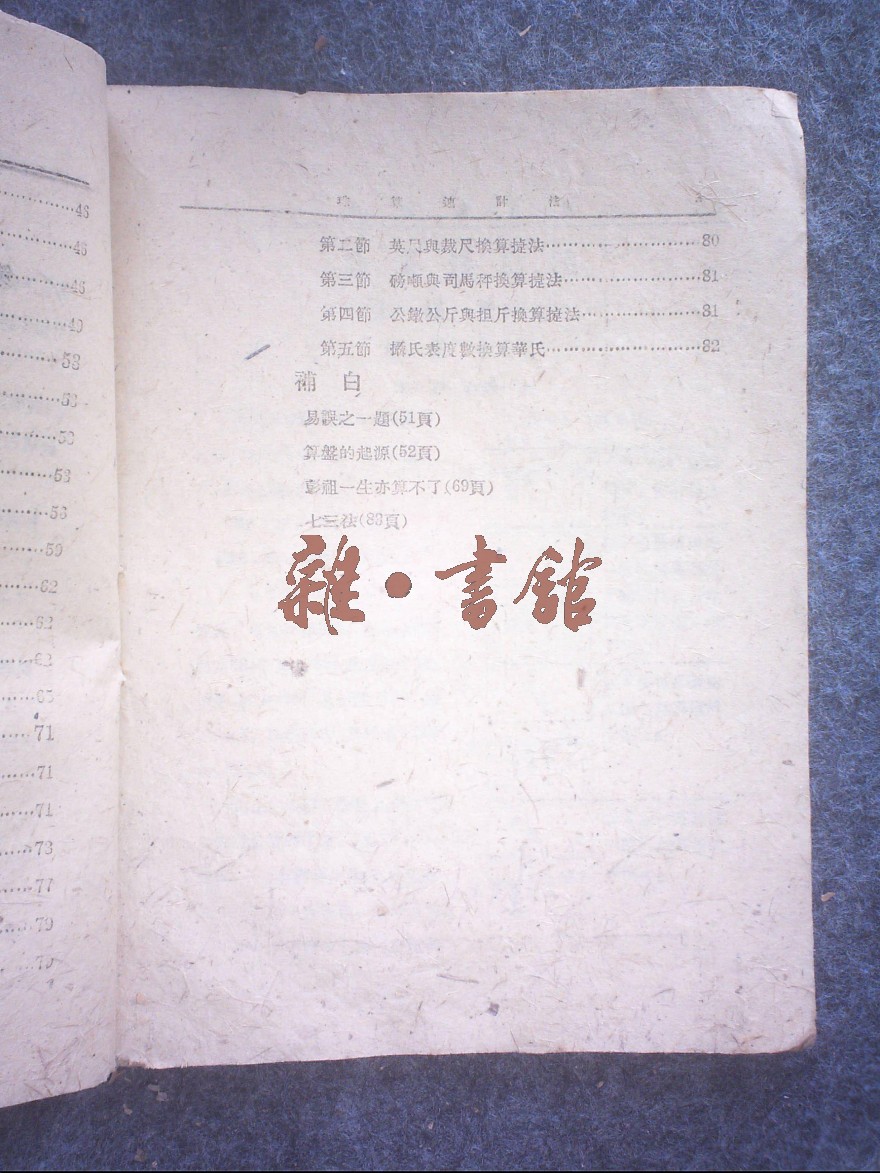 46
46
46
49
53
53
53
53
56
59
62
62
62
65
71
71
71
73
77
79
79
珠算速計法 3
第二節 英尺與裁尺換算捷法 80
第三節 磅噸與司馬秤換算捷法 81
第四節 公鐓公斤與担斤換算捷法 81
第五節 攝氏表度數換算華氏 82
補白
易誤之一題(51頁)
算盤的起源(52頁)
彭祖一生亦算不了(69頁)
七三法(83頁)
雜·書館